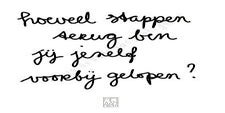 hoeveel stappen
terug ben
jij jezelf
voorbij gelopen?